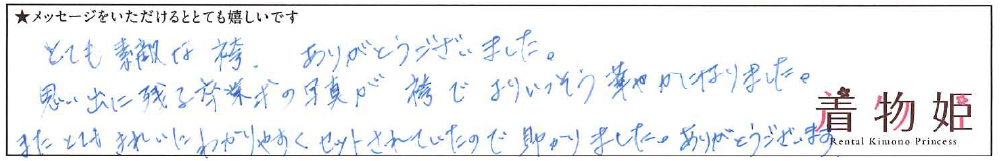 ★メッセージをいただけるととても嬉しいです
とても素敵な袴、ありがとうございました。
思い出に残る卒業式の写真が袴でよりいっそう華やかになりました。
またとてもきれいにわかりやすくセットされていたので助かりました。ありがとうございます
着物姫
Rental Kimono Princess